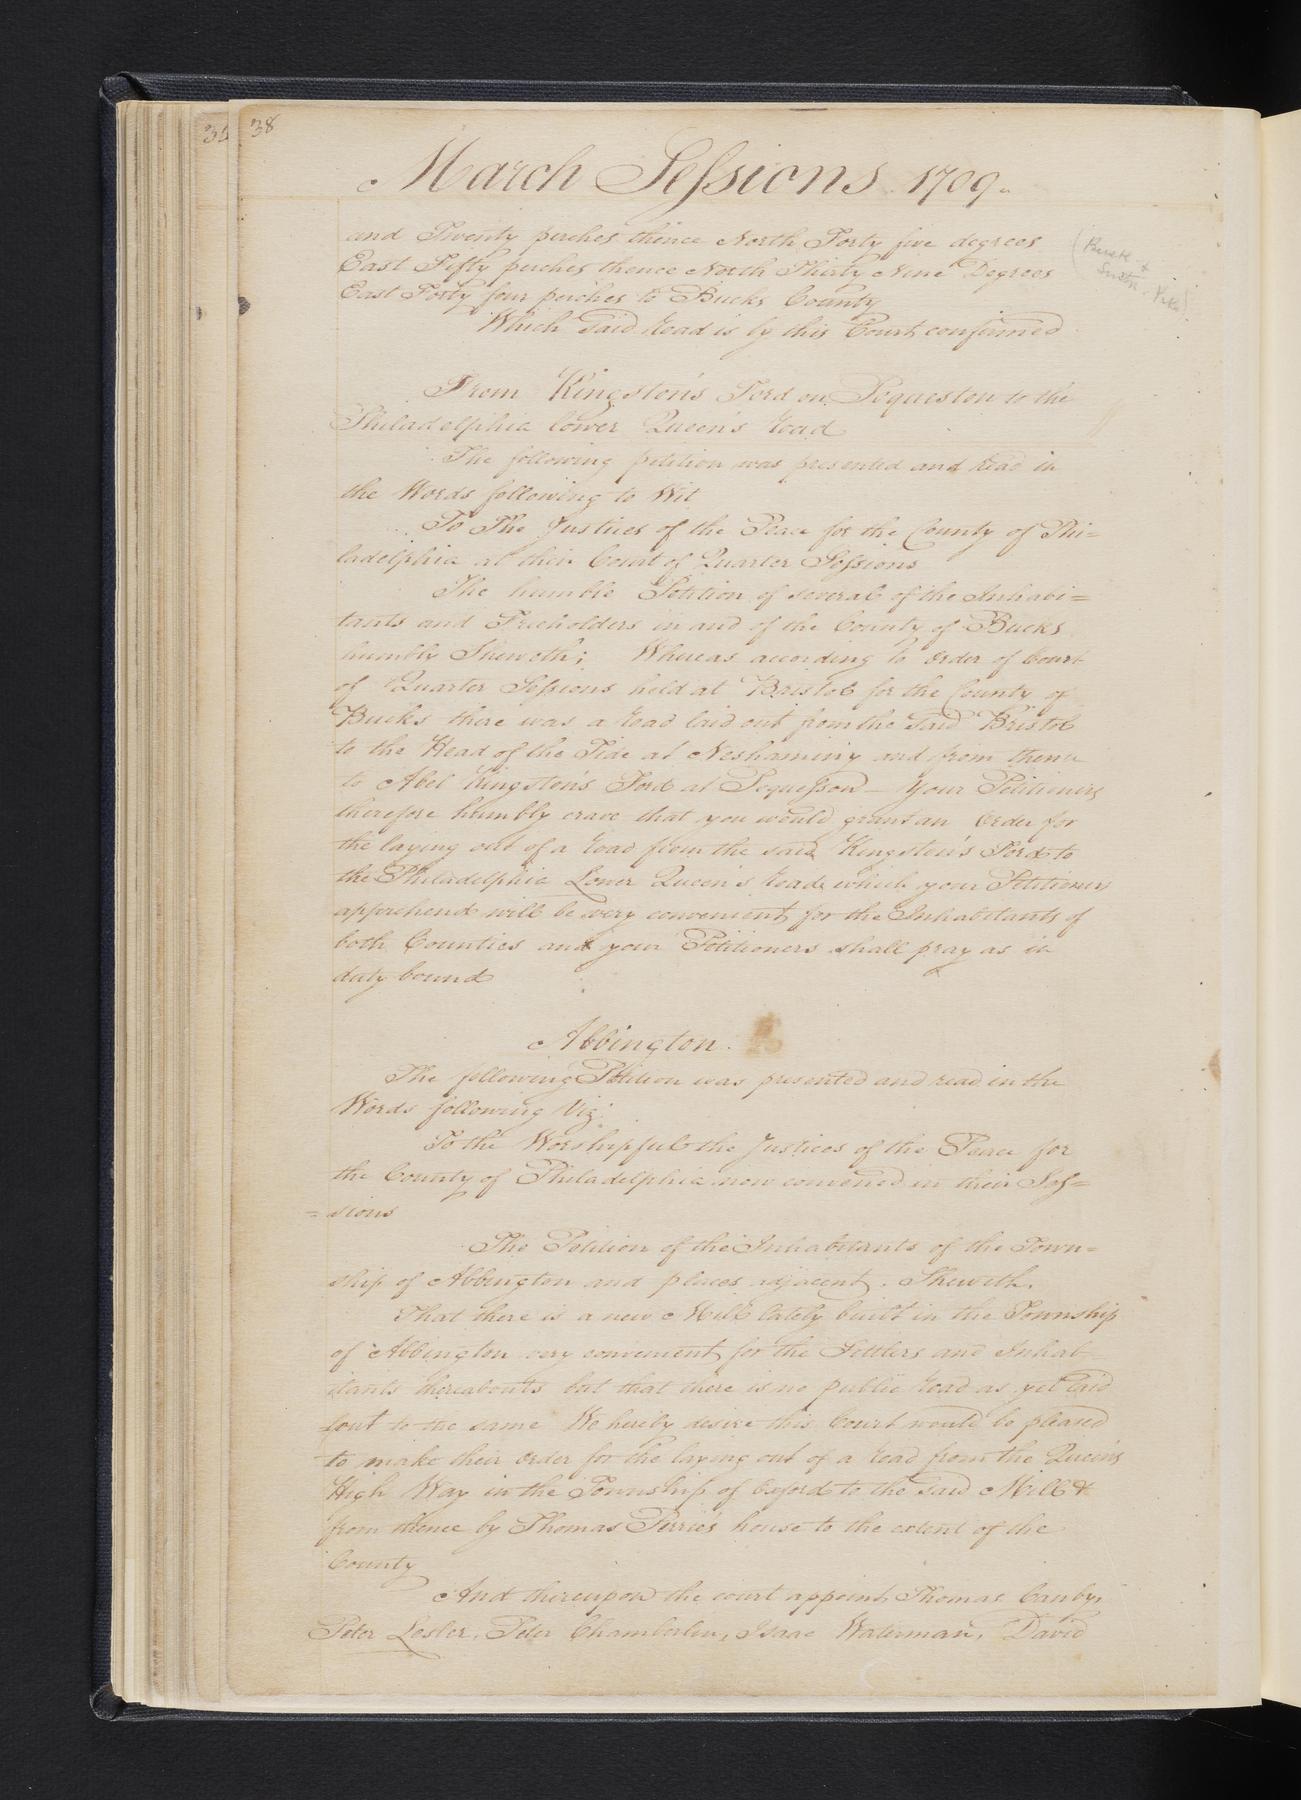 38
March Sessions 1709
and Twenty perches thence North Forty five degrees
East Fifty perches thence North Thirty Nine Degrees
East Forty four perches to Bucks County
Which Said Road is by this Court confirmed
From Kingston's Ford on Poqueston to the
Philadelphia lower Queen's Road
The following petition was presented and read in
the Words following to Wit
To The Justices of the Peace for the County of Phi=
ladelphia at their Court of Quarter Sessions
The humble Petition of several of the Inhabi=
tants and Freeholders in and of the County of Bucks
humbly Sheweth; Whereas according to order of Court
of Quarter Sessions held at Bristol for the County of
Bucks there was a Road laid out from the Said Bristol
to the Head of the Tide at Neshaminy and from thence
to Abel Kingston's Ford at Poquesson — Your Petitioners
therefore humbly crave that you would grant an Order for
the laying out of a Road from the said Kingston's Ford to
the Philadelphia Lower Queen's Road which your Petitioners
apprehend will be very convenient for the Inhabitants of
both Counties and your Petitioners shall pray as in
duty bound
Abbington.
The following Petition was presented and read in the
Words following Viz:
To the Worshipful the Justices of the Peace for
the County of Philadelphia now convened in their Ses=
=sions
The Petition of the Inhabitants of the Town=
ship of Abbington and places adjacent. Sheweth.
That there is a new Mill lately built in the Township
of Abbington very convenient for the Settlers and Inhab-
itants thereabouts but that there is no public Road as yet laid
out to the same We hereby desire this Court would be pleased
to make their order for the laying out of a Road from the Queen's
High Way in the Township of Oxford to the Said Mill &
from thence by Thomas Perrie's house to the extent of the
County
And thereupon the court appoint Thomas Canby,
Peter Lesler, Peter Chamberlin, Isaac Waterman, David